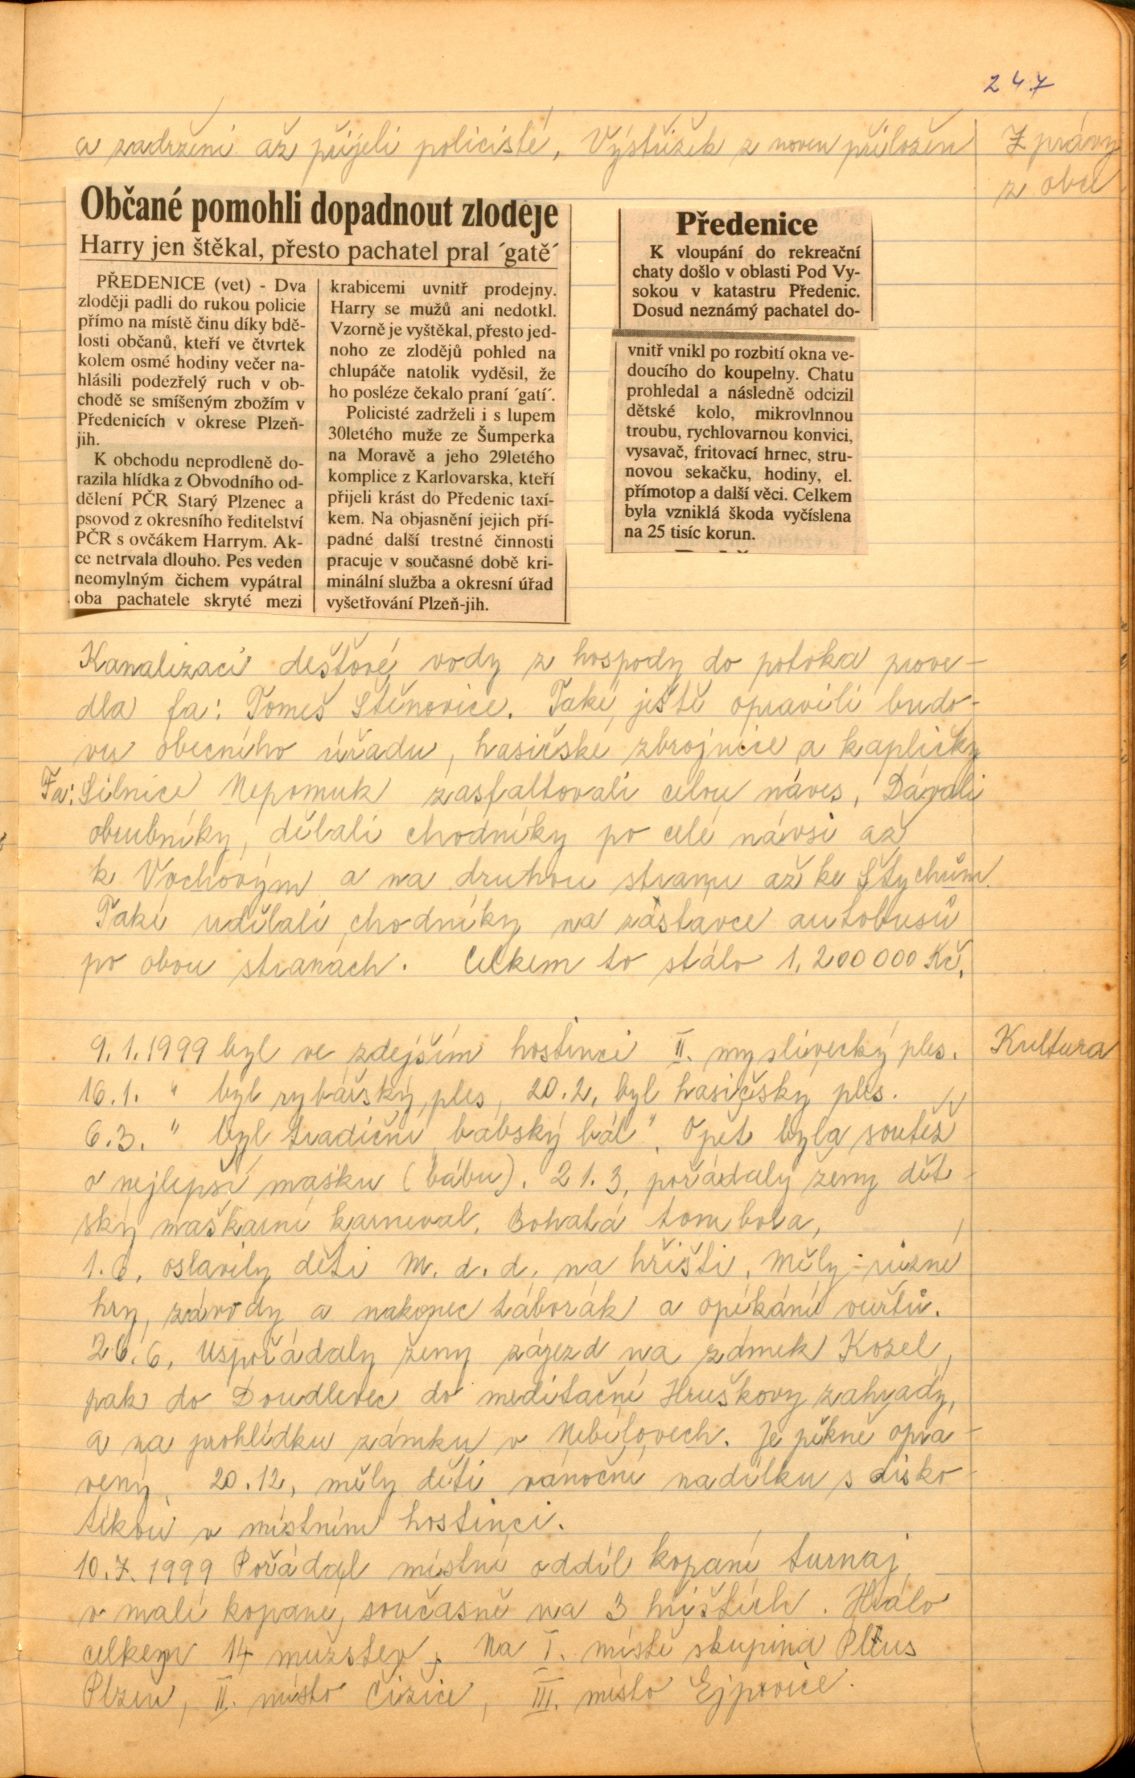 247
a zadrženi až přijeli policisté, Výstřižek z novin přiložen
Zprávy
z obce
Občané pomohli dopadnout zloděje
Harry jen štěkal, přesto pachatel pral ´gatě´
PŘEDENICE (vet) - Dva
zloději padli do rukou policie
přímo na místě činu díky bdě-
losti občanů, kteří ve čtvrtek
kolem osmé hodiny večer na-
hlásili podezřelý ruch v ob-
chodě se smíšeným zbožím v
Předenicích v okrese Plzeň-
jih.
K obchodu neprodleně do-
razila hlídka z Obvodního od-
dělení PČR Starý Plzenec a
psovod z okresního ředitelství
PČR s ovčákem Harrym. Ak-
ce netrvala dlouho. Pes veden
neomylným čichem vypátral
oba pachatele skryté mezi
krabicemi uvnitř prodejny.
Harry se mužů ani nedotkl.
Vzorně je vyštěkal, přesto jed-
noho ze zlodějů pohled na
chlupáče natolik vyděsil, že
ho posléze čekalo praní ´gatí´.
Policisté zadrželi i s lupem
30letého muže ze Šumperka
na Moravě a jeho 29letého
komplice z Karlovarska, kteří
přijeli krást do Předenic taxí-
kem. Na objasnění jejich pří-
padné další trestné činnosti
pracuje v současné době kri-
minální služba a okresní úřad
vyšetřování Plzeň-jih.
Předenice
K vloupání do rekreační
chaty došlo v oblasti Pod Vy-
sokou v katastru Předenic.
Dosud neznámý pachatel do-
vnitř vnikl po rozbití okna ve-
doucího do koupelny. Chatu
prohledal a následně odcizil
dětské kolo, mikrovlnnou
troubu, rychlovarnou konvici,
vysavač, fritovací hrnec, stru-
novou sekačku, hodiny, el.
přímotop a další věci. Celkem
byla vzniklá škoda vyčíslena
na 25 tisíc korun.
Kanalizaci dešťové vody z hospody do potoka prove-
dla fa: Tomeš Štěnovice. Také ještě opravili budo-
vu obecního úřadu, hasičské zbrojnice a kapličky
Fa: Silnice Nepomuk zasfaltovali celou náves, Dávali
obrubníky, dělali chodníky po celé návsi až
k Vochovým a na druhou stranu až ke Štychům.
Také udělali chodníky na zástavce autobusů
po obou stranách. Celkem to stálo 1,200 000 Kč.
Kultura
9.1.1999 byl ve zdejším hostinci II. myslivecký ples.
16.1. " byl rybářský ples, 20.2. byl hasičský ples.
6.3. " byl tradiční "babský bál". Opět byla soutěž
o nejlepší masku (bábu). 21.3. pořádaly ženy dět-
ský maškarní karneval. Bohatá tombola,
1.6. oslavily děti M.d.d. na hřišti. Měly různé
hry, závody a nakonec táborák a opékání vuřtů.
26.6. Uspořádaly ženy zájezd na zámek Kozel,
pak do Doudlevec do meditační Hruškovy zahrady,
a na prohlídku zámku v Nebílovech. Je pěkně opra-
vený. 20.12. měly děti vánoční nadílku s disko-
tékou v místním hostinci.
10.7.1999 Pořádal místní oddíl kopané turnaj
v malé kopané, současně na 3 hřištích. Hrálo
celkem 14 mužstev. Na I. místě skupina Pltus
Plzeň, II. místo Čižice, III. místo Ejpovice.